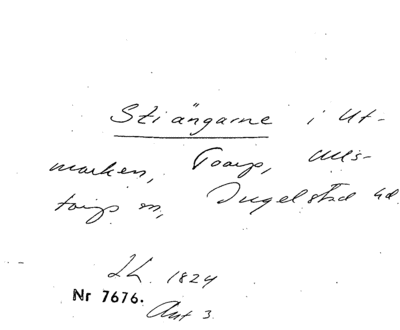 Stiängarne i Ut-
marken, Toarp, Ulls-
torps sn, Ingelstad hd.
Lh. 1824
Nr 7676.
Akt 3.